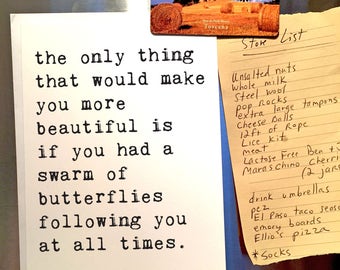 the only thing
that would make
you more
beautiful is
if you had a
swarm of
butterflies
following you
at all times.
Store List
Unsalted nuts
Whole milk
Steel wool
pop rocks
extra large tampons
Cheese balls
12ft of Rope
Lice kit
meat
Lactose Free Ben +
Maraschino Cherri
(2 jars
drink umbrellas
El Paso taco seaso
emory boards
Ellio's pizza
*Socks